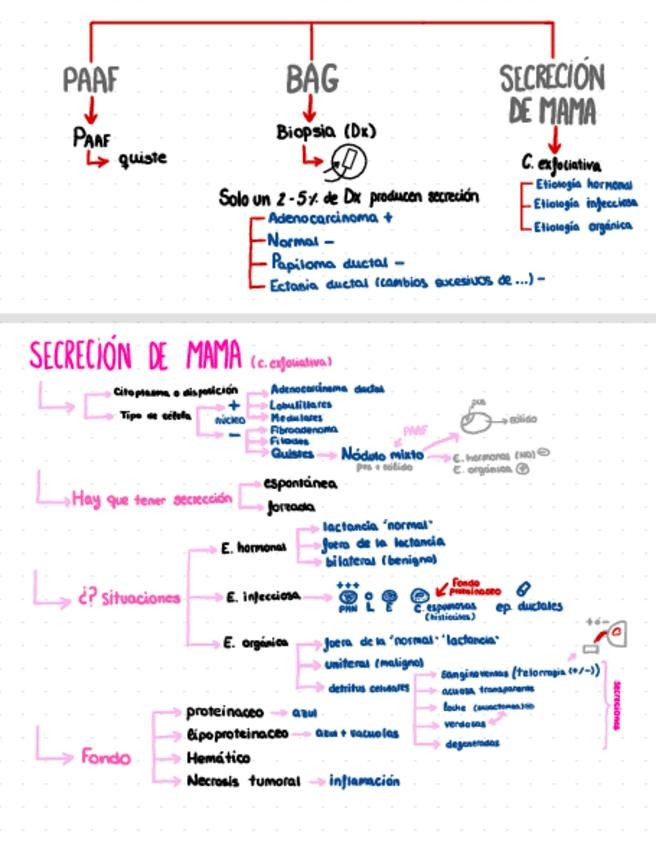 PAAF
BAG
SECRECIÓN
DE MAMA
PAAF
quiste
Biopsia (Dx)
C. exfoliativa
Etiología hormonal
Etiología infecciosa
Etiología orgánica
Solo un 2-5% de Dx producen secreción
Adenocarcinoma +
Normal -
Papiloma ductal -
Ectania ductal (cambios sucesivos de ...) -
SECRECIÓN DE MAMA (c. exfoliativa)
Citoplasma o disposición
Tipo de célula
núcleo
+
-
Adenocarcinoma ductal
Lobulillares
Medulares
Fibroadenoma
Filodes
Quistes
Nódulo mixto
sólido
PAAF
E. hormonas (no) -
E. orgánica +
Hay que tener secrección
espontánea
forzada
¿? situaciones
E. hormonal
lactancia "normal"
fuera de la lactancia
bilateral (benigno)
E. infecciosa
+++
PMN
L
E
C. espumosas
(histiocitos)
Fondo
proteinaceo
ep. ductales
E. orgánica
fuera de la "normal" "lactancia"
uniteral (maligno)
detritus celulares
sanginoventas (telorragia (+/-))
acuosa transparente
leche
verdosas
degeneradas
SECRECIONES
+o-
Fondo
proteinaceo
azul
lipoproteinaceo
azul + vacuolas
Hemático
Necrosis tumoral
inflamación